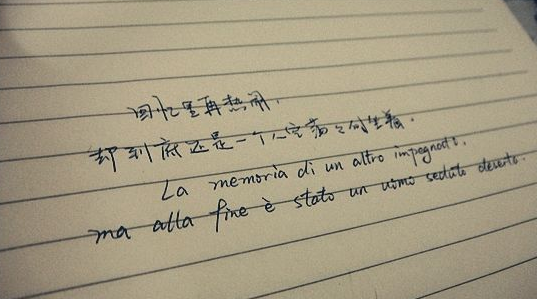 回忆里再热闹，
却到底还是一个人空荡之的坐着．
La memoria di un altro impegnati.
ma alla fine è stato un uomo seduto deserto.